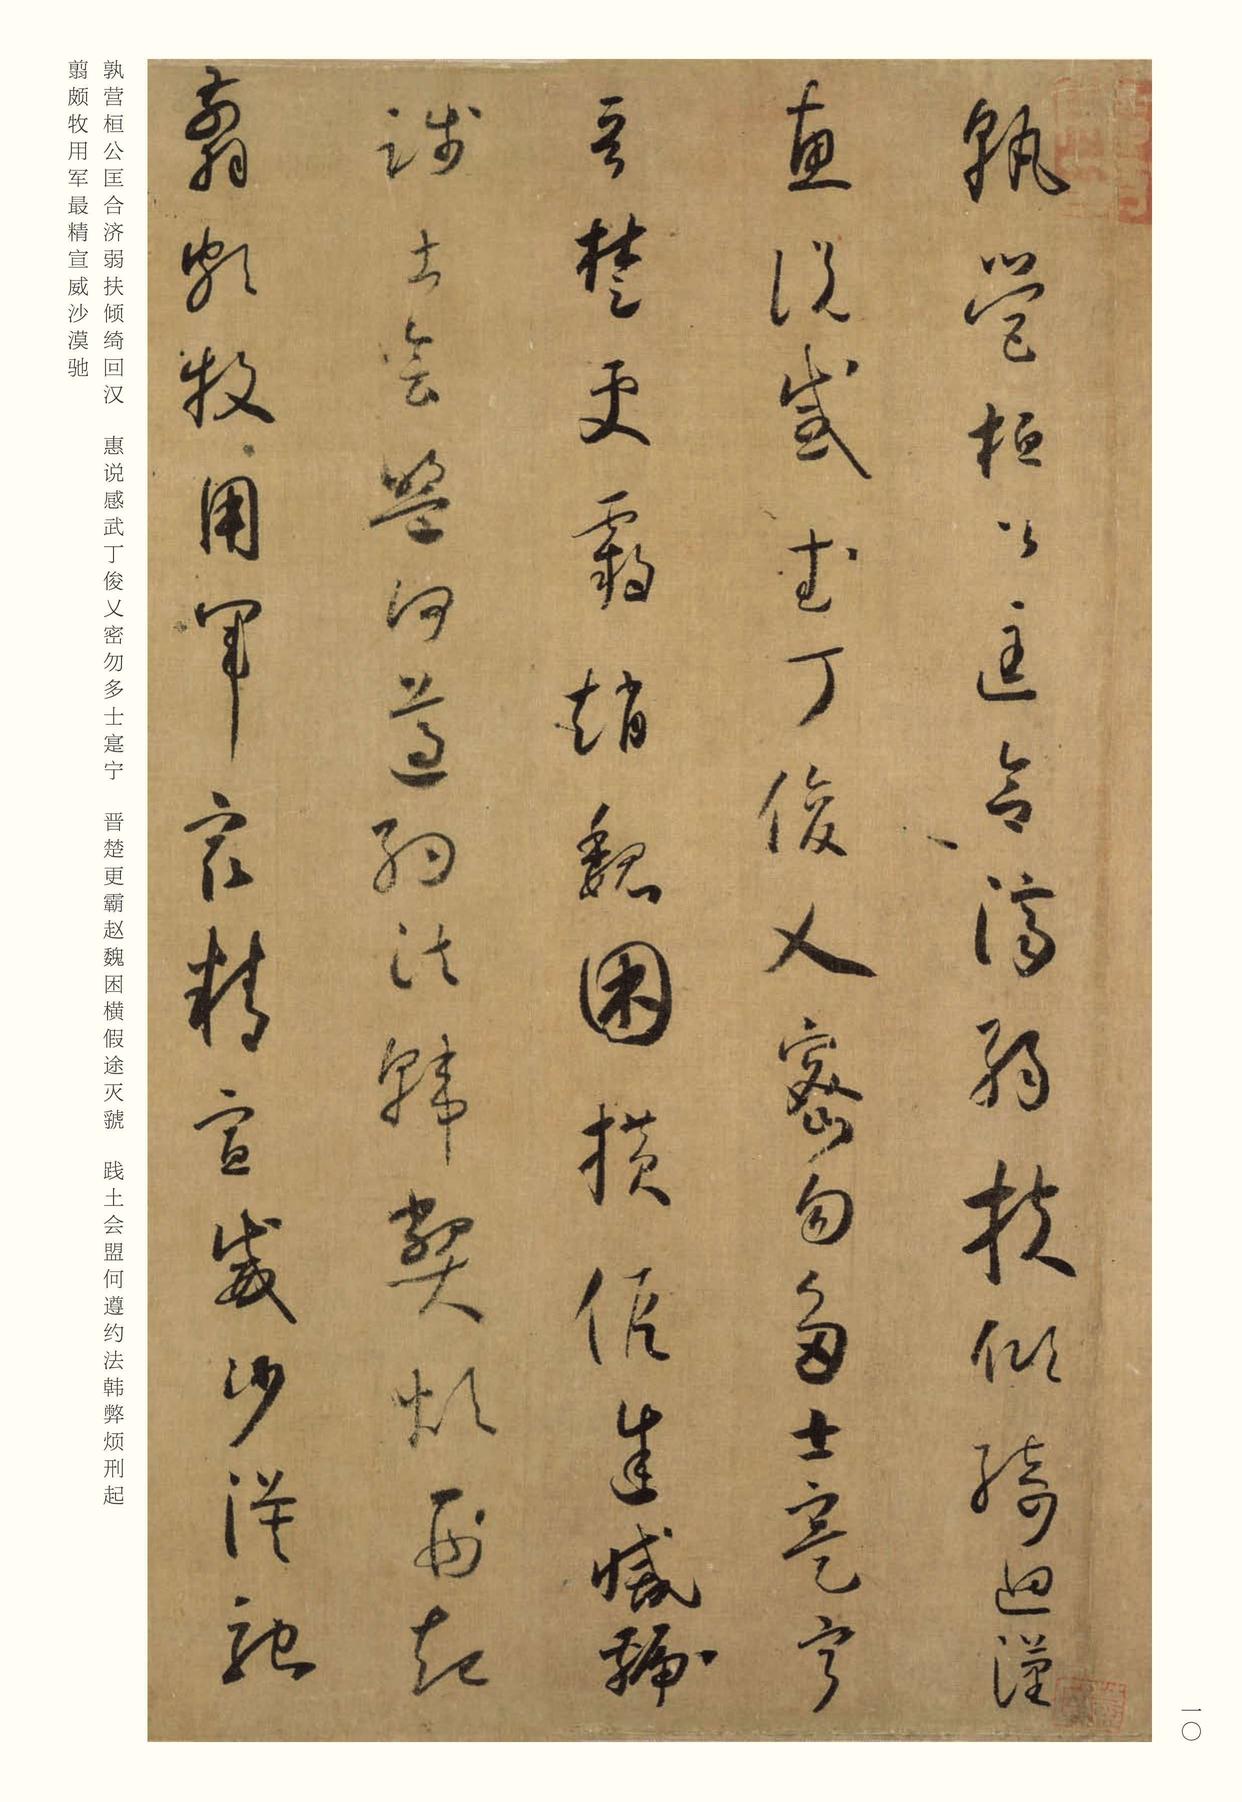 孰營桓公匡合濟弱扶傾綺迴漢
惠說感武丁俊乂密勿多士寔寧
晉楚更霸趙魏困橫假途滅虢
踐土會盟何遵約法韓弊煩刑起
翦頗牧用軍最精宣威沙漠馳
孰营桓公匡合济弱扶倾绮回汉　惠说感武丁俊乂密勿多士寔宁　晋楚更霸赵魏困横假途灭虢　践土会盟何遵约法韩弊烦刑起
翦颇牧用军最精宣威沙漠驰
一〇